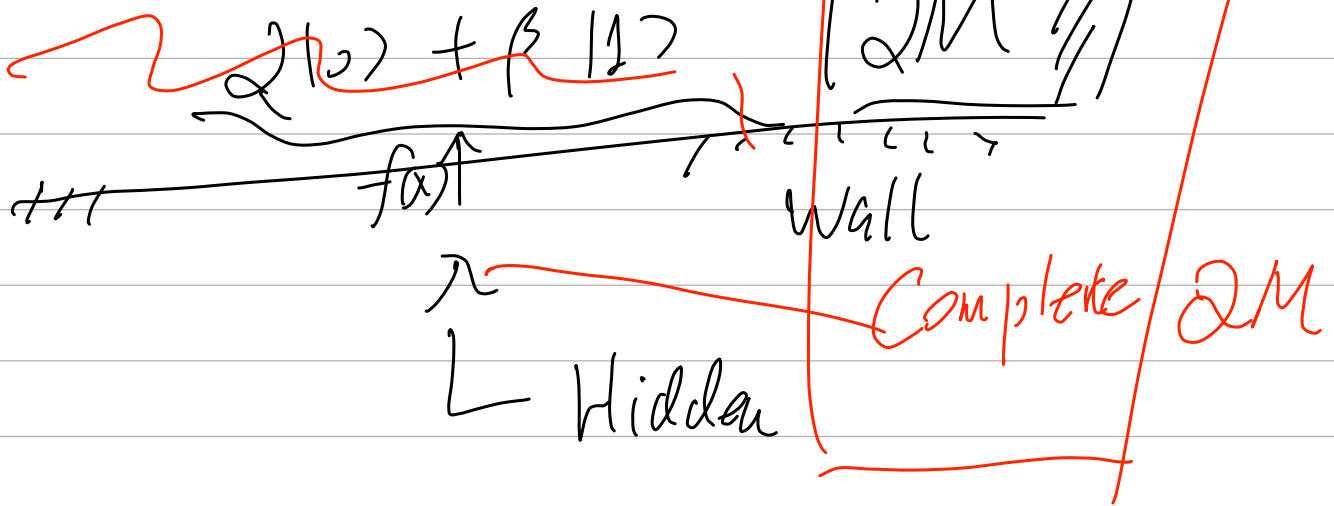 α|0> + β|1> |QM
f(x)
Wall
Complete QM
Hidden